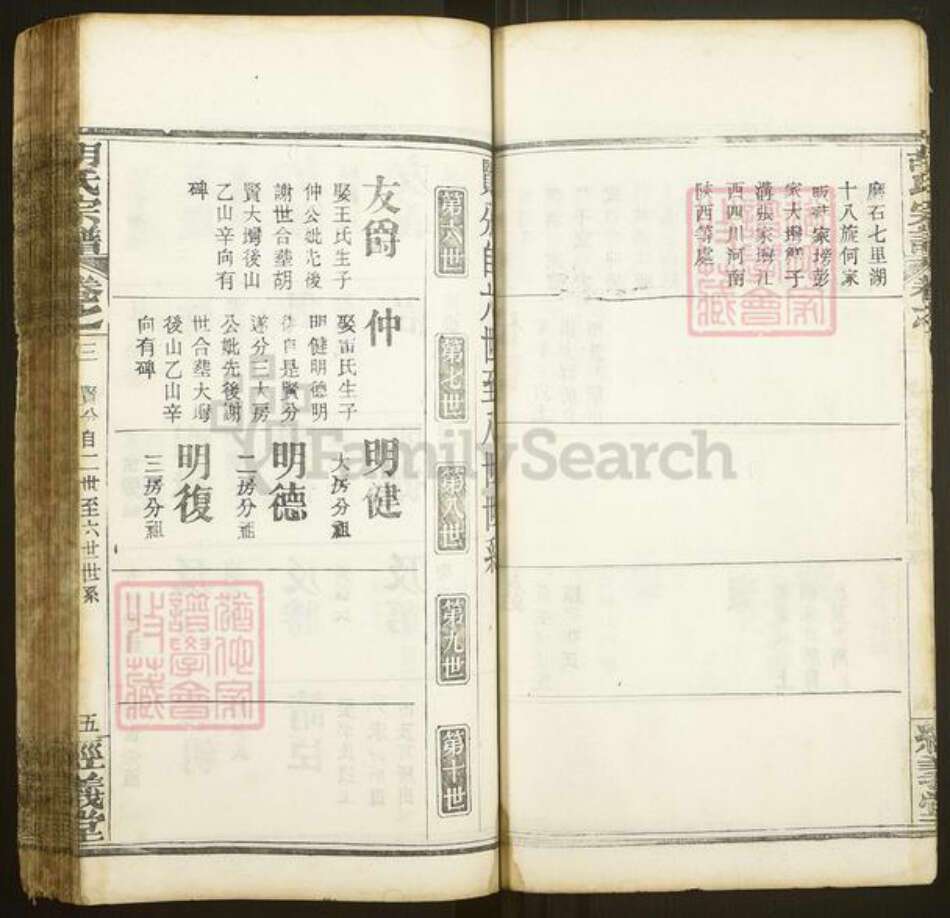 胡氏宗譜
麻石七里湖
十八旋何家
家大塆
溝張家塆江
西四川河南
陝西等處
第六世
第七世
第八世
第九世
第十世
友爵
娶王氏生子
仲公妣先後
謝世合塟胡
賢大塆後山
乙山辛向有
碑
仲
娶雷氏生子
明健明德明
復自是賢分
遂分三大房
公妣先後謝
世合塟大塆
後山乙山辛
向有碑
明健
大房分祖
明德
二房分祖
明復
三房分祖
胡氏宗譜
卷之
三
賢分自二世至六世世系
五
經義堂
經義堂
FamilySearch